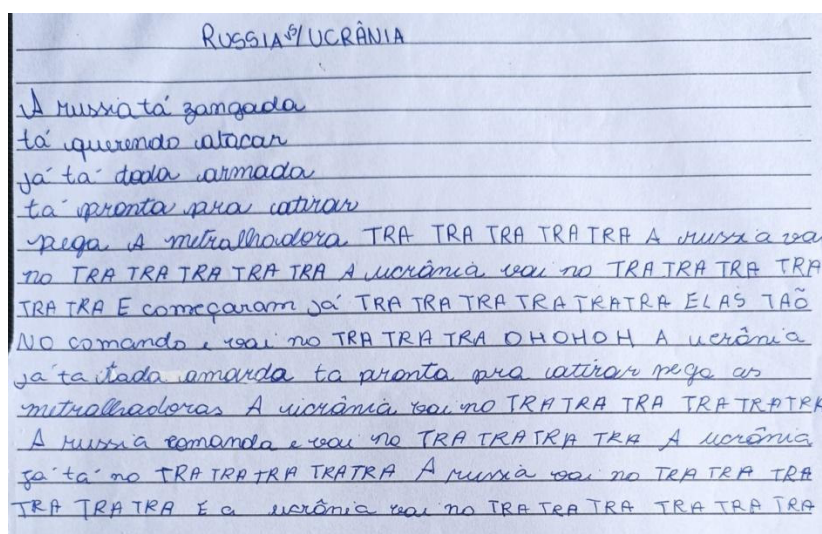 RUSSIA VS/UCRÂNIA
A russia tá zangada
tá querendo atacar
já tá toda armada
tá pronta pra atirar
pega A metralhadora TRA TRA TRA TRA TRA A russia vai
no TRA TRA TRA TRA TRA A ucrânia vai no TRA TRA TRA TRA
TRA TRA E começaram já TRA TRA TRA TRA TRATRA ELAS TAÕ
NO comando e vai no TRA TRA TRA OHOHOH A ucrânia
já ta toda amarda ta pronta pra atirar pega as
metralhadoras A ucrânia vai no TRA TRA TRA TRA TRATRA
A russia comanda e vai no TRA TRA TRA TRA A ucrônia
já tá no TRA TRA TRA TRATRA A russia vai no TRA TRA TRA
TRA TRA TRA E a ucrânia vai no TRA TRA TRA TRA TRA TRA